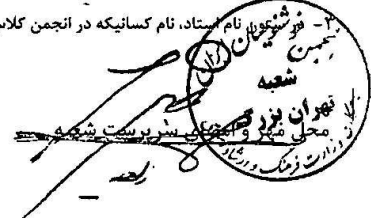 ۳- نام استاد، نام کسانیکه در انجمن کلاس
انجمن خوشنویسان ایران
شعبه
تهران بزرگ
وزارت فرهنگ و ارشاد
محل مهر و امضای سرپرست شعبه